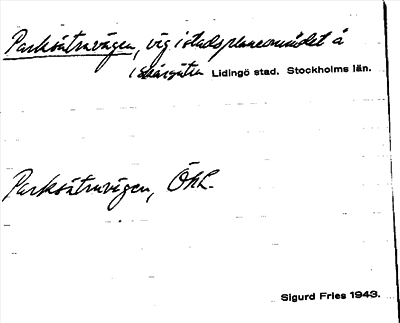 Parksätravägen, väg i stadsplaneområdet å
i Skärsätra Lidingö stad. Stockholms län.
Parksätravägen, ÖhL.
Sigurd Fries 1943.